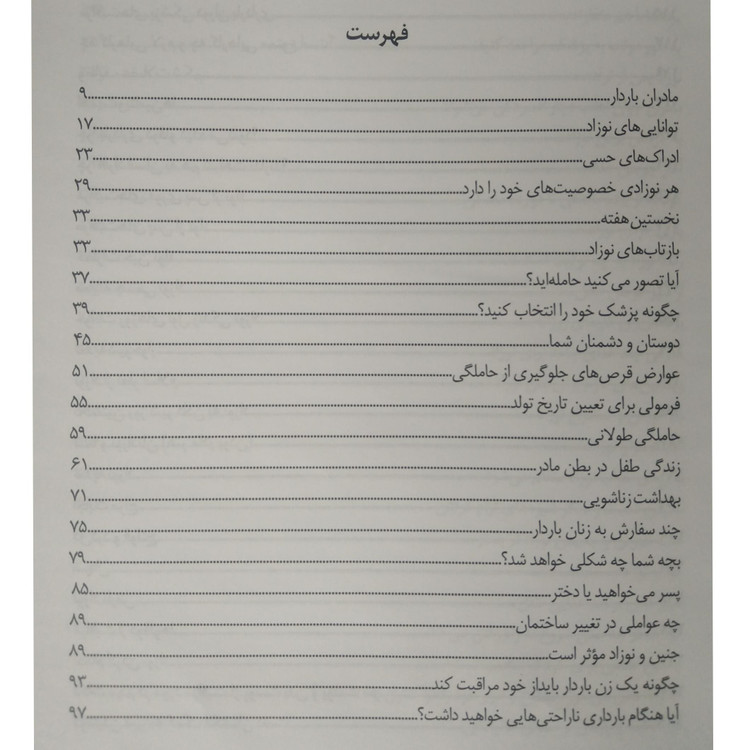 فهرست
مادران باردار........................۹
توانایی‌های نوزاد........................۱۷
ادراک‌های حسی........................۲۳
هر نوزادی خصوصیت‌های خود را دارد........................۲۹
نخستین هفته........................۳۳
بازتاب‌های نوزاد........................۳۳
آیا تصور می کنید حامله‌اید؟........................۳۷
چگونه پزشک خود را انتخاب کنید؟........................۳۹
دوستان و دشمنان شما........................۴۵
عوارض قرص‌های جلوگیری از حاملگی........................۵۱
فرمولی برای تعیین تاریخ تولد........................۵۵
حاملگی طولانی........................۵۹
زندگی طفل در بطن مادر........................۶۱
بهداشت زناشویی........................۷۱
چند سفارش به زنان باردار........................۷۵
بچه شما چه شکلی خواهد شد؟........................۷۹
پسر می‌خواهید یا دختر........................۸۵
چه عواملی در تغییر ساختمان........................۸۹
جنین و نوزاد مؤثر است........................۸۹
چگونه یک زن باردار بایداز خود مراقبت کند........................۹۳
آیا هنگام بارداری ناراحتی‌هایی خواهید داشت؟........................۹۷